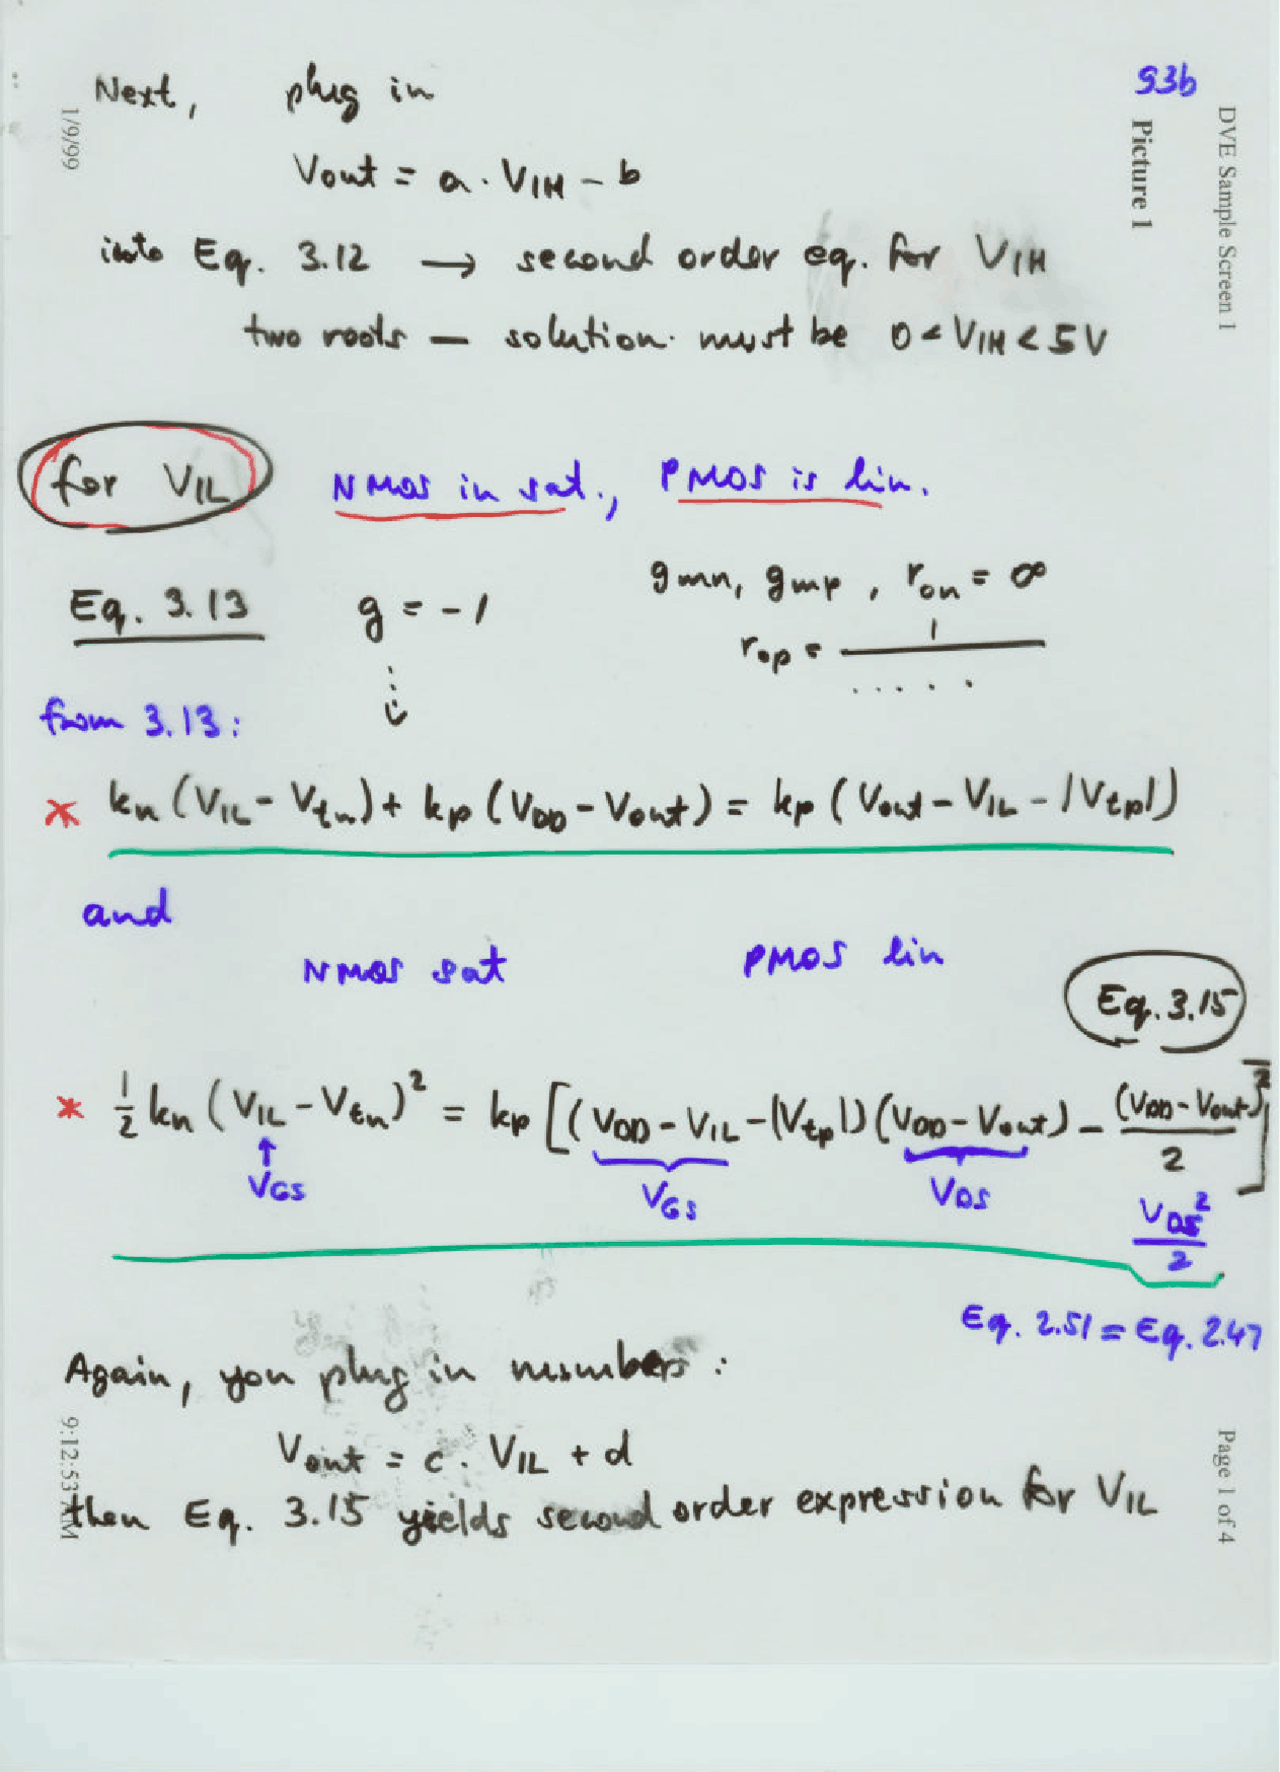 93b
DVE Sample Screen 1
Picture 1
1/9/99
Next, plug in
Vout = a . VIH - b
into Eq. 3.12 → second order eq. for VIH
two roots — solution must be 0 < VIH < 5V
for VIL NMOS in sat., PMOS is lin.
gmn, gmp, ron = ∞
Eq. 3.13 g = -1
rop = 1 / .....
from 3.13:
* kn (VIL - Vtn) + kp (VDD - Vout) = kp (Vout - VIL - |Vtp|)
and
NMOS sat PMOS lin
Eq. 3.15
* 1/2 kn (VIL - Vtn)² = kp [(VDD - VIL - |Vtp|)(VDD - Vout) - (VDD - Vout)²/2]
VGS VGS VDS VDS²/2
Eq. 2.51 = Eq. 2.47
Again, you plug in numbers:
Vout = c . VIL + d
then Eq. 3.15 yields second order expression for VIL
9:12:53 AM
Page 1 of 4